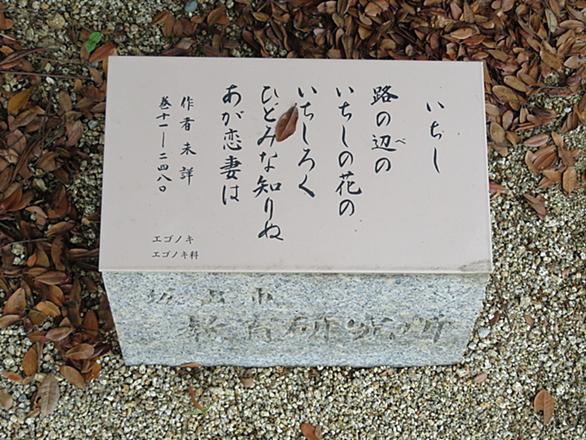 いちし
路の辺の
べ
いちしの花の
いちしろく
ひとみな知りぬ
あが恋妻は
作者未詳
巻十一―二四八〇
エゴノキ
エゴノキ科
教育研究所